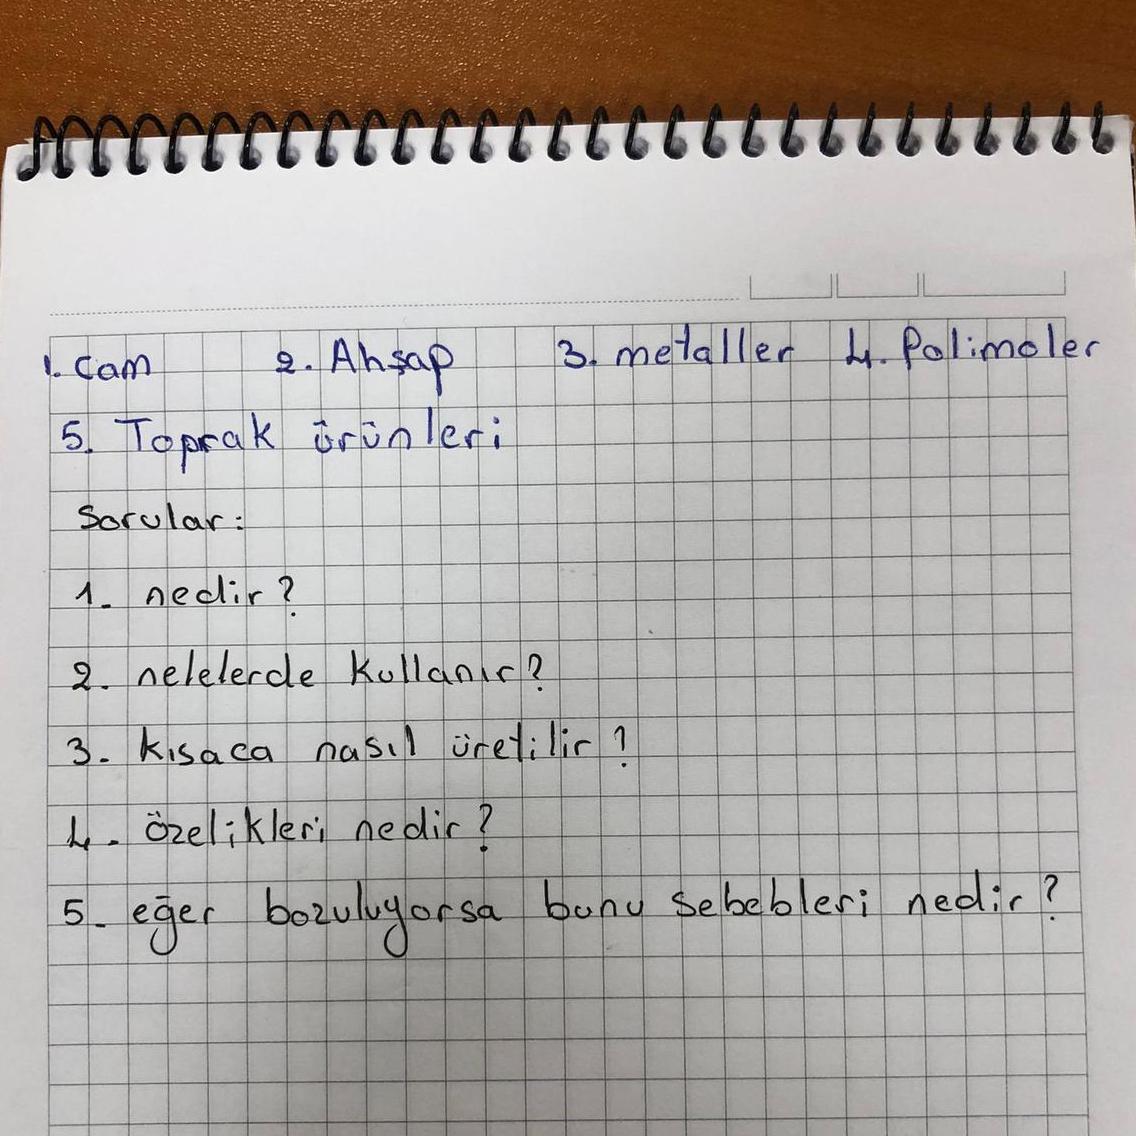 1. Cam 2. Ahşap 3. metaller 4. Polimoler
5. Toprak ürünleri
Sorular:
1. nedir?
2. nelelerde kullanır?
3. kısaca nasıl üretilir?
4. özelikleri nedir?
5. eğer bozuluyorsa bunu sebebleri nedir?